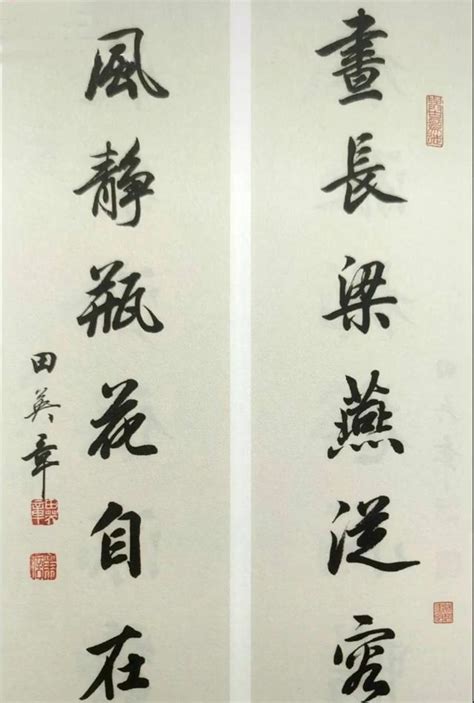 晝長梁燕從容
風靜瓶花自在
田英章